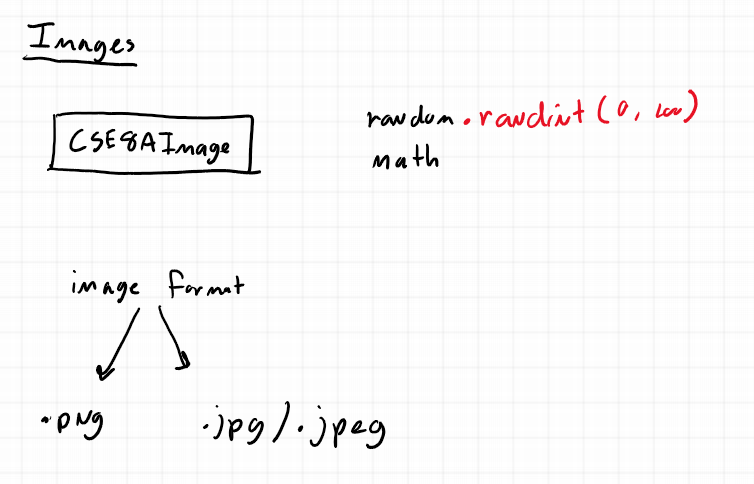 Images
CSE8AImage
random.randint(0, 100)
math
image format
.png
.jpg/.jpeg